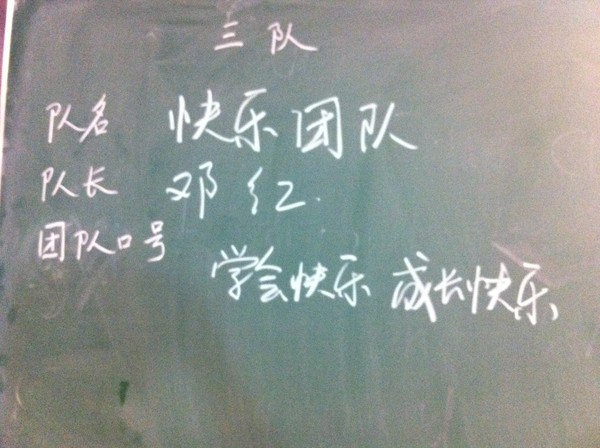 三队
队名 快乐团队
队长 邓红.
团队口号 学会快乐 成长快乐